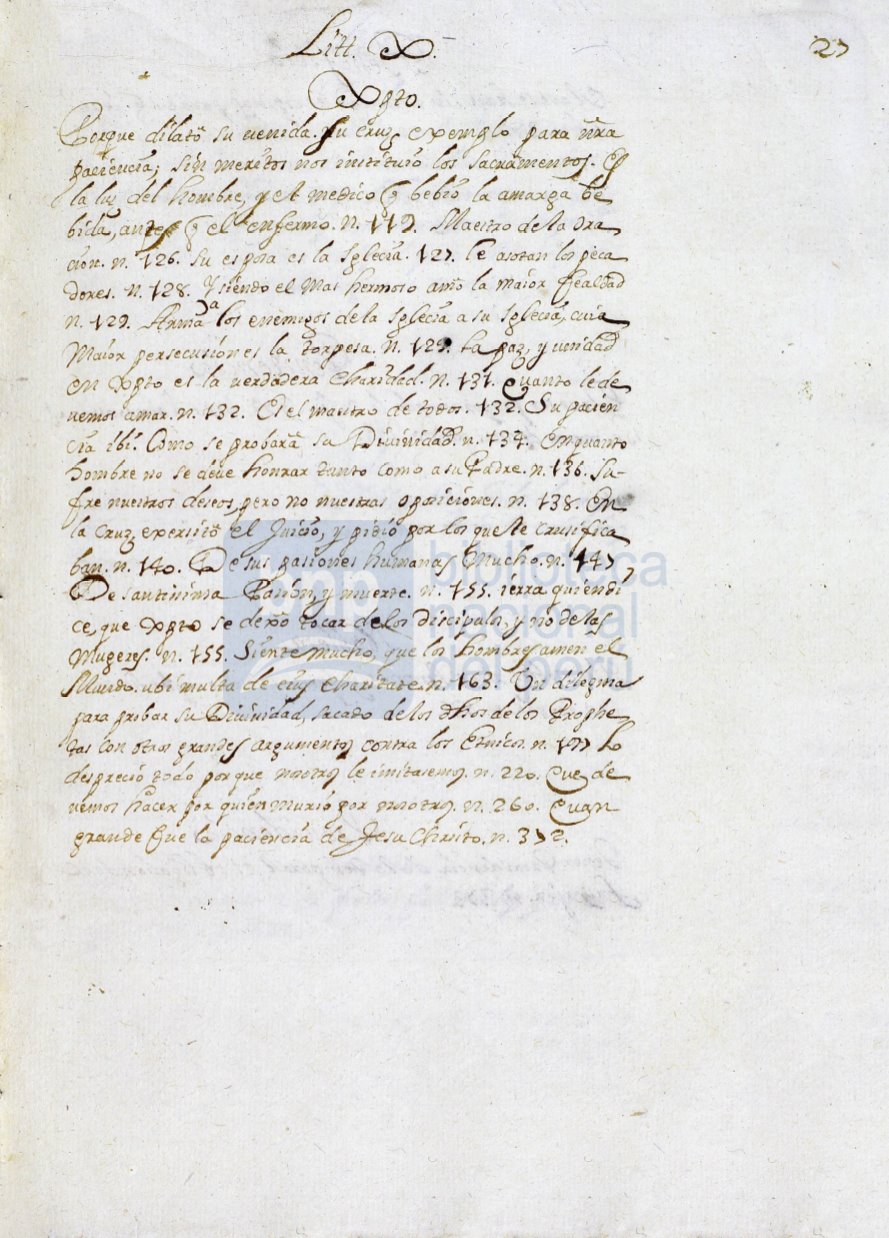 Litt. X.
27
Xpto.
Porque dilató su uenida. Su cruz exemplo para nr̃a
paciencia; sin meritos nos instituió los Sacramentos. Es
la luz del hombre, y el medico q̃ bebió la amarga be
bida, antes q̃ el enfermo. n. 119. Maestro de la Ora
cion. n. 126. su esposa es la Iglecia. 127. le asotan los peca
dores. n. 128. Y siendo el mas hermoso amó la maior fealdad
n. 129. Arma a los enemigos de la Iglecia a su Iglecia, cuia
maior persecusion es la torpesa. n. 129. La paz, y unidad
en Xpto es la uerdadera charidad. n. 131. Quanto le de
uemos amar. n. 132. Es el maestro de todos. 132. Su pacien
cia ibi. Como se probará su Diuinidad. n. 134. en quanto
hombre no se deue honrar tanto como a su Padre. n. 136. Su-
fre nuestros deseos, pero no nuestras oposiciones. n. 138. En
la cruz, exersitó el Juicio, y pidió por los que le crusifica
ban. n. 140. De sus pasiones humanas mucho. n. 147
De santissima Pasion, y muerte. n. 155. ierra quien di
ce, que Xpto se dexó tocar de los discipulos, y no de las
mugeres. n. 155. Siente mucho, que los hombres amen el
Mundo. ubi multa de eius charitate. n. 163. Un dilegma
para probar su Diuinidad, sacado de los dhos de los Prophe
tas con otros grandes argumentos contra los Etnicos. n. 177 Lo
despreció todo porque nosotros le imitasemos. n. 220. Que de
uemos hacer por quien murió por nosotros. n. 260. Quan
grande fue la paciencia de Jesu Christo. n. 372.
biblioteca
nacional
del perú
bnp